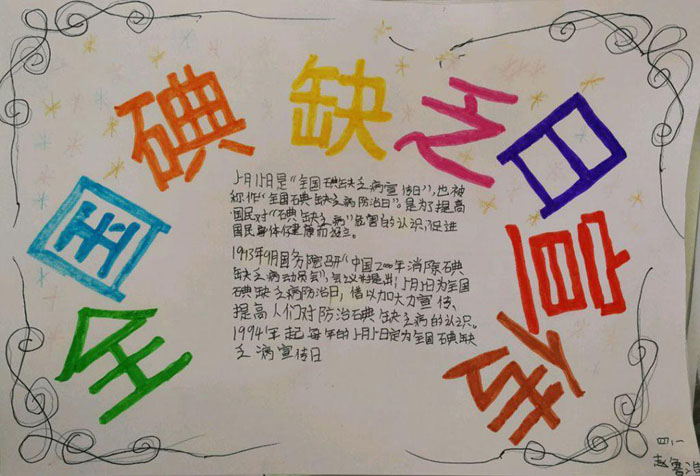 全国碘缺乏日宣传
5月15日是“全国碘缺乏病宣传日”,也被
称作“全国碘缺乏病防治日”。是为了提高
国民对“碘缺乏病”危害的认识,促进
国民身体健康而设立。
1993年9月国务院召开“中国2000年消除碘
缺乏病动员会”,会议并提出5月5日为全国
碘缺乏病防治日,借以加大力宣传、
提高人们对防治碘缺乏病的认识。
1994年起每年的5月5日定为全国碘缺
乏病宣传日
四.1
赵